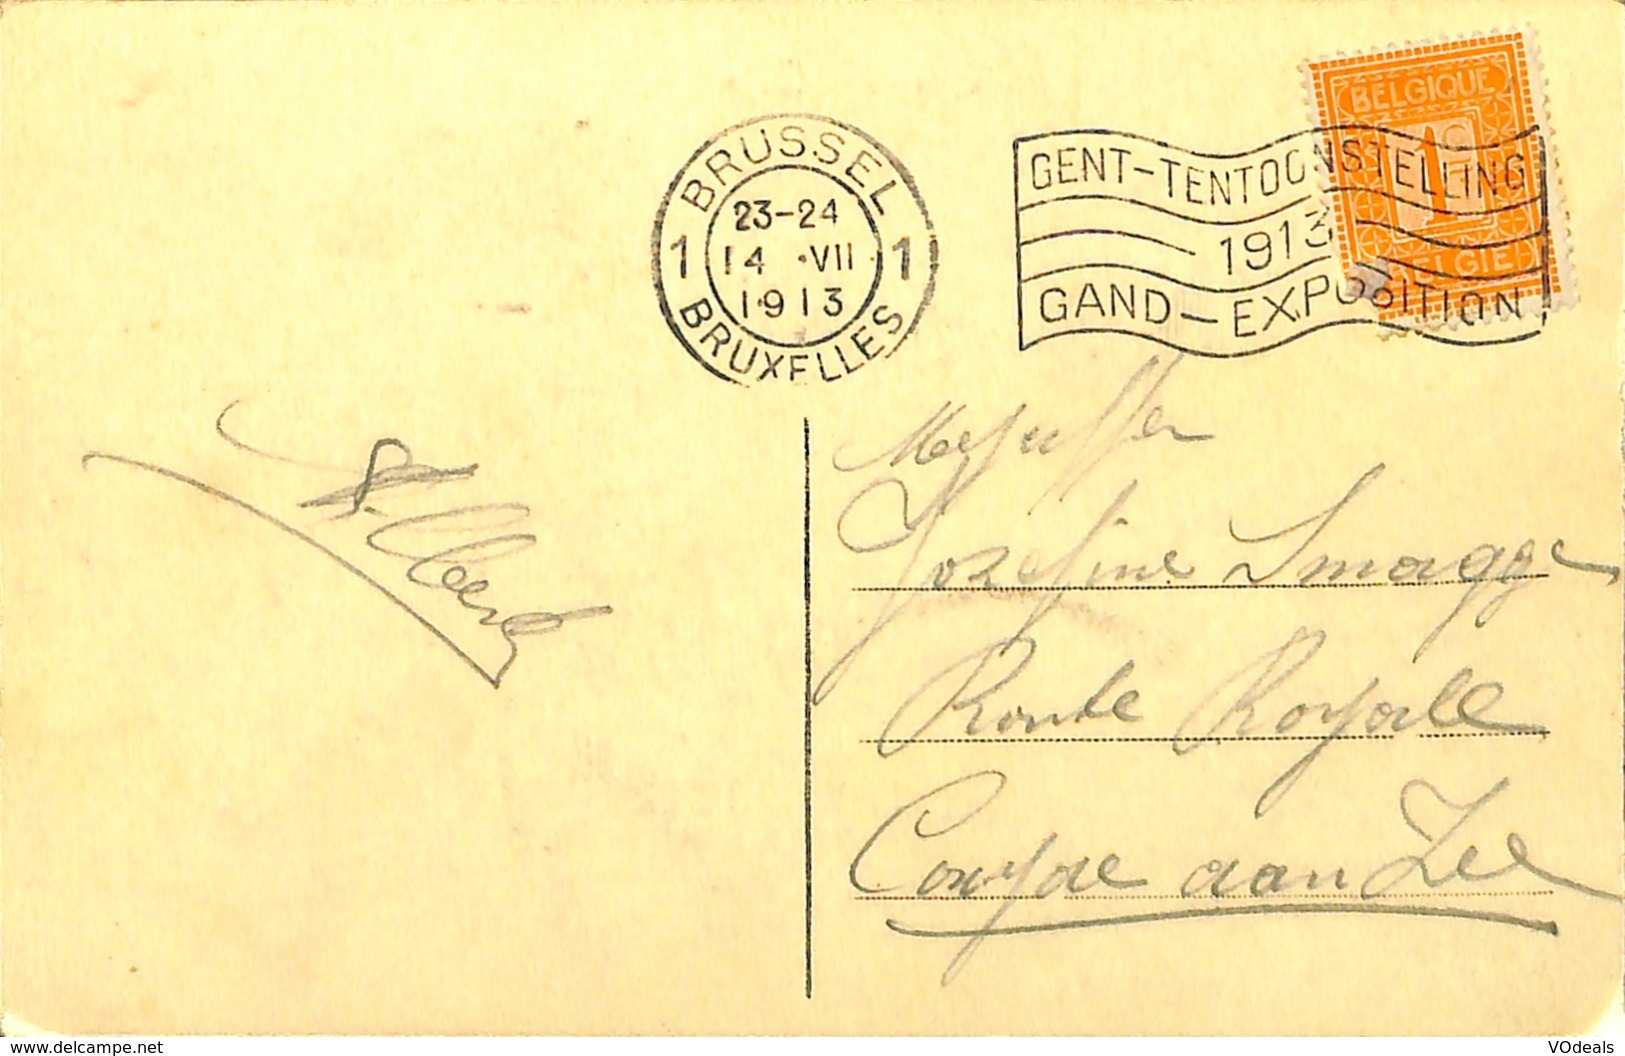 BRUSSEL
23-24
1 14 ·VII 1
1913
BRUXELLES
GENT-TENTOONSTELLING
1913
GAND-EXPOSITION
BELGIQUE
1C
BELGIE
Albert
Mejuffer
Josefine Smagge
Route Royale
Coxyde aan Zee
www.delcampe.net
VOdeals